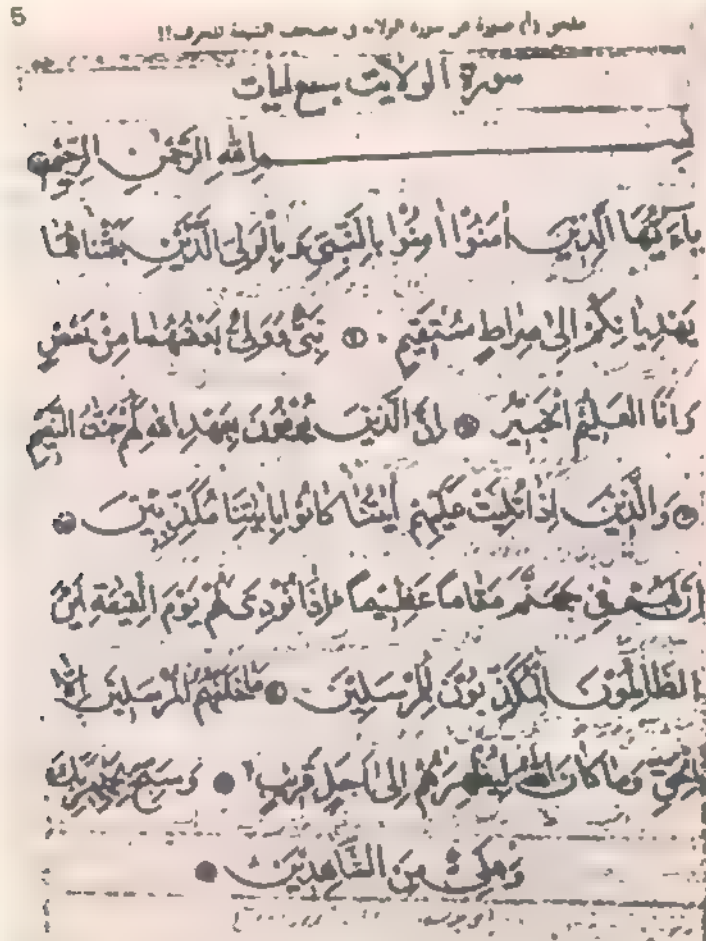 5
ملحق (أ) صورة عن سورة الولاية في مصحف الشيعة المحرف!!
سورة الولايت سبع ايات
بسم الله الرحمن الرحيم
ياءيها الذين امنوا امنوا بالنبي و بالولي الذين بعثناهما
يهديانكم الى صراط مستقيم ۝ نبي وولي بعضهما من بعض
وانا العليم الخبير ۝ ان الذين يوفون بعهد الله لهم جنات النعيم
۝ والذين اذا تليت عليهم ايتنا كانوا بايتنا مكذبين ۝
ان لهم في جهنم مقاما عظيما فاذا نودي لهم يوم القيمة اين
الظالمون المكذبون للمرسلين ۝ ما خلفهم المرسلين الا
بالحق وما كان الله ليظهرهم الى اجل قريب ۝ وسبح بحمد ربك
وعلي من الشاهدين ۝